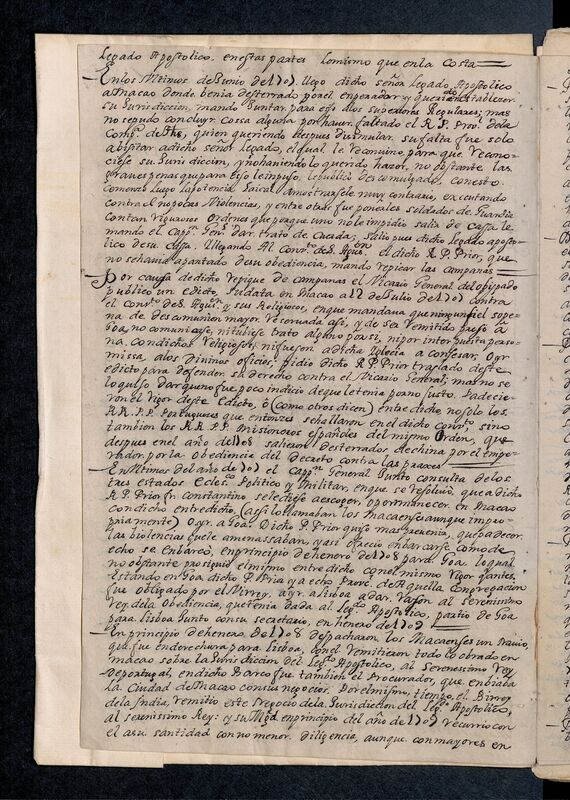 Legado Apostolico, en estas partes lo mismo que en la Costa
En los Vltimos de Junio de 1707. llego dicho señor Legado Apostolico
a Macao donde benia desterrado por el emperador, y queriendo establezer
su Jurisdiccion, mando Juntar para esso a los superiores Regulares; mas
no se pudo concluyr cossa alguna por haver faltado el R. P. Prov.l de la
Comp.a de Jhs, quien queriendo despues disimular su falta fue solo
a bisitar a dicho señor legado, el qual le reconvino, para que recono-
ciesse su Jurisdiccion, y no haviendolo querido hazer, no obstante las
graves penas que para esso le impuso, le publicó descomulgado, con esto
comenzo luego la potencia saical, a mostrarsele muy contrario, executando
contra el no pocas Violencias, y entre otras fue ponerles soldados de Guardia
con tan rigurosos ordenes que porque uno no le impidio salir de cassa le
mando el Capp.n Gen.l dar trato de Cuerda, salio pues dicho legado aposto-
lico de su cassa. Llegando Al Conv.to de S. Agus.n en el dicho R. P. Prior, que
no se havia apartado de su obediencia, mando repicar las campanas
Por causa de dicho repique de campanas el Vicario General del obispado
publico un edicto, su data en Macao a 12 de Julio de 1707 contra
el Conv.to de S. Agus.n y sus Religiosos, en que mandava que ninguno so pe-
na de descomunion mayor reservada a si, y de ser remitido preso a
Goa, no comunicase, ni tubiese trato alguno por si, ni por interpuesta perso-
na. con dichos religiosos, ni fuesen a dicha Iglesia a confesar, Oyr
missa, a los Divinos oficios, pidio dicho R. P. Prior traslado deste
edicto para defender su derecho contra el Vicario General; mas no se
lo quiso dar que no fue poco indicio de que le tenia por no justo. Padecie-
ron el rigor deste Edicto, o (como otros dicen) entredicho, no solo los
RR. PP. Portugueses que entonzes se hallaron en el dicho conv.to, sino
tambien los RR. PP. Misioneros españoles del mismo Orden, que
despues en el año de 1708 salieron desterrados, de china por el empe-
rador, por la obediencia del Decreto contra las praxes
En Vltimos del año de 707 el Capp.n General Junto consulta de los
tres estados Ecles.co Politico y Militar, en que se resolvió, que a dicho
R. P. Prior fr. Constantino se le diesse a escoger, o permanecer en Macao
con dicho entredicho, (assi lo llamaban los Macaenses aunque impro-
piamente) O yr a Goa. Dicho P. Prior quiso mas que padecer
las biolencias que le amenassaban, y assi ofrecio embarcarse como de
echo se embarcó, en principio de henero de 1708 para Goa. lo qual
no obstante prosiguio el mismo entredicho con el mismo vigor q antes.
Estando en Goa dicho P. Prior y a echo Prov.l de Aquella Congregacion
fue obligado por el Virrey, a yr a Lisboa a dar razon al Serenissimo
rey de la Obediencia, que tenia dada al Leg.do Apostolico, partio de Goa
para Lisboa Junto con su secretario, en henero de 1709
En principio de henero de 1708 despacharon los Macaenses un Navio,
que fue en derechura para Lisboa, con el remitieron todo lo obrado en
macao sobre la Jurisdiccion del Leg.do Apostolico, al Serenissimo Rey
de portugal, en dicho Barco fue tambien el Procurador, que enbiaba
la Ciudad de Macao con sus negocios. Por el mismo, tiempo, el Birrey
de la India, remitio este Negocio de la Jurisdiction del Leg.do Apostolico,
al serenissimo Rey: y su Mag.d en principio del año de 1709 recurrio con
el a su santidad con no menor diligencia, aunque con mayores en